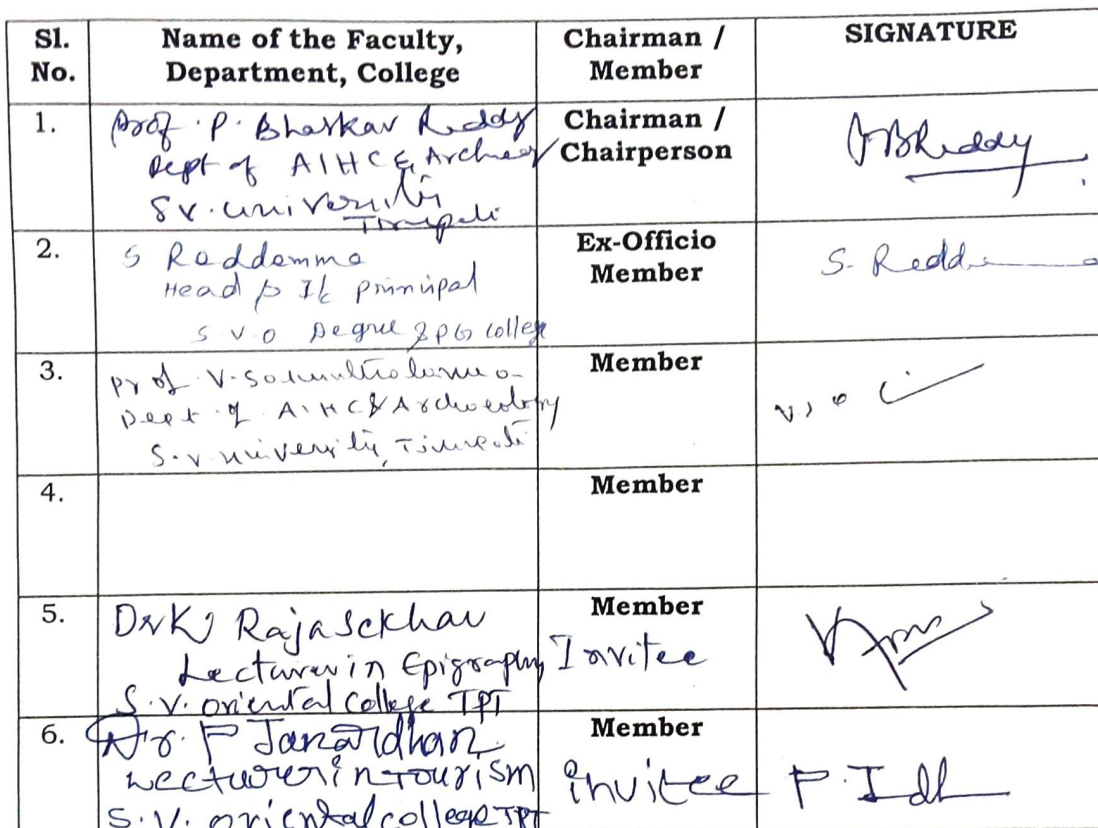 Sl. No.
Name of the Faculty, Department, College
Chairman / Member
SIGNATURE
1.
Prof. P. Bhaskar Reddy
Dept of AIHC &
S.V. University
Tirupati
Chairman / Chairperson
Reddy
2.
S Reddemma
Head I/c principal
S V O Degree & PG college
Ex-Officio Member
S. Redd
3.
Prof. V.
Dept. of A.I.H.C & Archaeology
S.V. University, Tirupati
Member
4.
Member
5.
Dr K Rajasekhar
Lecturer in Epigraphy
S.V. oriental College TPT
Member
Invitee
6.
Dr. P Janardhan
Lecturer in Tourism
S.V. oriental college TPT
Member
invitee